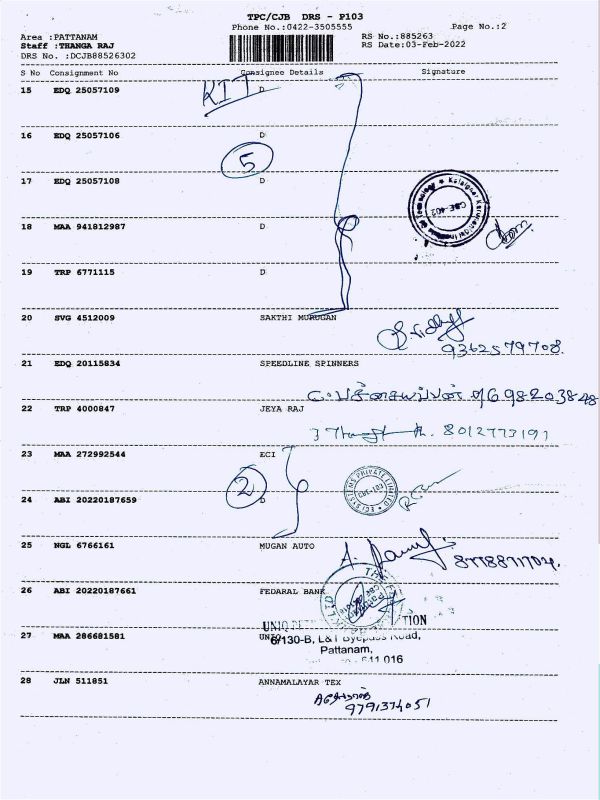 TPC/CJB DRS - P103
Phone No.:0422-3505555
Page No.:2
Area :PATTANAM
RS No.:885263
Staff :THANGA RAJ
RS Date:03-Feb-2022
DRS No. :DCJB88526302
S No Consignment No Consignee Details Signature
KIT
15 EDQ 25057109 D
16 EDQ 25057106 D
5
17 EDQ 25057108 D
CBE-402
18 MAA 941812987 D
19 TRP 6771115 D
20 SVG 4512009 SAKTHI MURUGAN
9362579708.
21 EDQ 20115834 SPEEDLINE SPINNERS
22 TRP 4000847 JEYA RAJ
8012773191
23 MAA 272992544 ECI
2
ECI SYSTEMS PRIVATE LIMITED
24 ABI 20220187659 D
25 NGL 6766161 MUGAN AUTO
26 ABI 20220187661 FEDARAL BANK
27 MAA 286681581 UNIQ
6/130-B, L&T Byepass Road,
Pattanam,
641 016
28 JLN 511851 ANNAMALAYAR TEX
9791374051